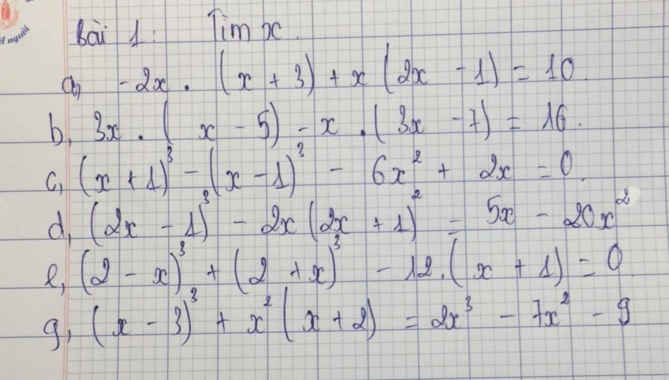 Bài 1: Tìm x.
a, -2x . (x + 3) + x (2x - 1) = 10
b, 3x . (x - 5) - x . (3x - 7) = 16.
c, (x + 1)³ - (x - 1)³ - 6x² + 2x = 0
d, (2x - 1)³ - 2x (2x + 1)² = 5x - 20x²
e, (2 - x)³ + (2 + x)³ - 12 . (x + 1) = 0
g, (x - 3)³ + x² (x + 2) = 2x³ - 7x² - 9